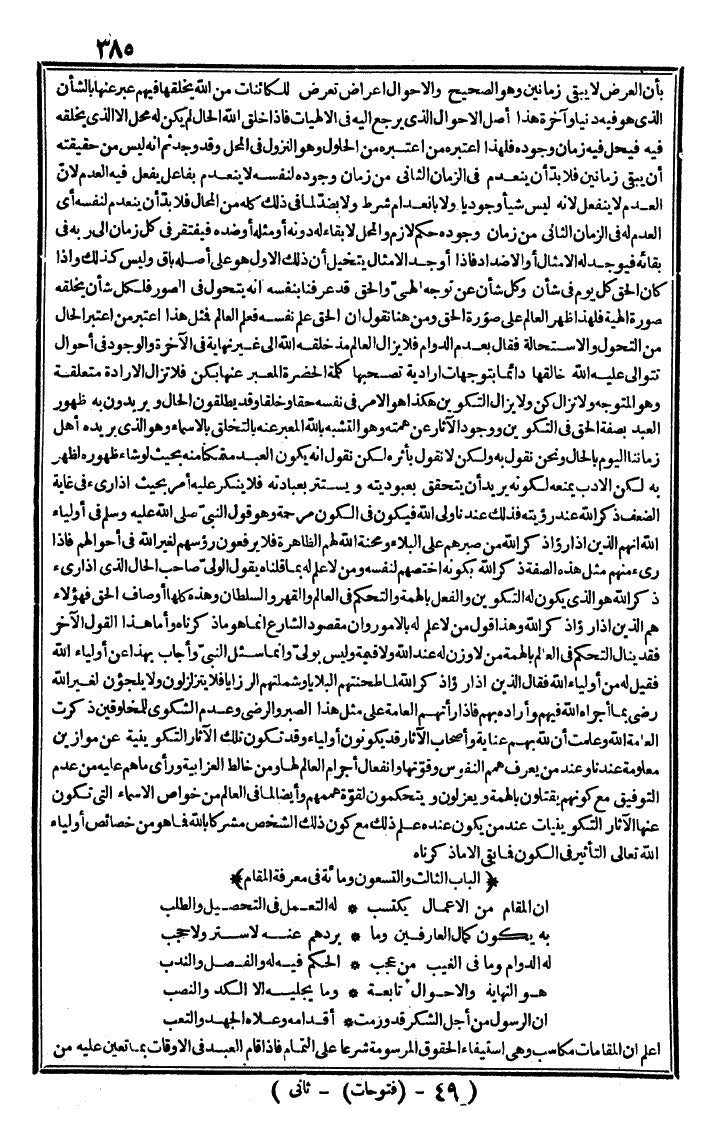 ٣٨٥
بأن العرض لا يبقى زمانين وهو الصحيح والاحوال اعراض تعرض للكائنات من الله يخلقها فيهم عبر عنها بالشأن
الذى هو فيه دنيا وآخرة هذا أصل الاحوال الذى يرجع اليه فى الالهيات فاذا خلق الله الحال لم يكن له محل الا الذى يخلقه
فيه فيحل فيه زمان وجوده فلهذا اعتبره من اعتبره من الحلول وهو النزول فى المحل وقد وجد ثم انه ليس من حقيقته
أن يبقى زمانين فلا بد أن ينعدم فى الزمان الثانى من زمان وجوده لنفسه لا ينعدم بفاعل يفعل فيه العدم لانّ
العدم لا ينفعل لانه ليس شيأ وجوديا ولا بانعدام شرط ولا بضدّ لما فى ذلك كله من المحال فلا بدّ أن ينعدم لنفسه أى
العدم له فى الزمان الثانى من زمان وجوده حكم لازم والمحل لا بقاء له دونه أو مثله أو ضده فيفتقر فى كل زمان الى ربه فى
بقائه فيوجد له الامثال أو الاضداد فاذا أوجد الامثال يتخيل أن ذلك الاول هو على أصله باق وليس كذلك واذا
كان الحق كل يوم فى شأن وكل شأن عن توجه الهىّ والحق قد عرفنا بنفسه انه يتحول فى الصور فلكل شأن يخلقه
صورة الهية فلهذا ظهر العالم على صورة الحق ومن هنا نقول ان الحق علم نفسه فعلم العالم فمثل هذا اعتبر من اعتبر الحال
من التحول والاستحالة فقال بعدم الدوام فلا يزال العالم مذ خلقه الله الى غير نهاية فى الآخرة والوجود فى أحوال
تتوالى عليه الله خالقها دائما بتوجهات ارادية تصحبها كلمة الحضرة المعبر عنها بكن فلا تزال الارادة متعلقة
وهو المتوجه ولا تزال كن ولا يزال التكوين هكذا هو الامر فى نفسه حقا وخلقا وقد يطلقون الحال ويريدون به ظهور
العبد بصفة الحق فى التكوين ووجود الآثار عن همته وهو التشبه بالله المعبر عنه بالتخلق بالاسماء وهو الذى يريده أهل
زماننا اليوم بالحال ونحن نقول به ولكن لا نقول بأثره لكن نقول انه يكون العبد متمكنا منه بحيث لو شاء ظهوره لظهر
به لكن الادب يمنعه لكونه يريد أن يتحقق بعبوديته ويستتر بعبادته فلا ينكر عليه أمر بحيث اذا رىء فى غاية
الضعف ذكر الله عند رؤيته فذلك عندنا ولى الله فيكون فى الكون مرحمة وهو قول النبىّ صلى الله عليه وسلم فى أولياء
الله انهم الذين اذا رؤا ذكر الله من صبرهم على البلاء ومحنة الله لهم الظاهرة فلا يرفعون رؤسهم لغير الله فى أحوالهم فاذا
رىء منهم مثل هذه الصفة ذكر الله بكونه اختصهم لنفسه ومن لا علم له بما قلناه يقول الولىّ صاحب الحال الذى اذا رىء
ذكر الله هو الذى يكون له التكوين والفعل بالهمة والتحكم فى العالم والقهر والسلطان وهذه كلها أوصاف الحق فهؤلاء
هم الذين اذا رؤا ذكر الله وهذا قول من لا علم له بالامور وان مقصود الشارع انما هو ما ذكرناه وأما هذا القول الآخر
فقد ينال التحكم فى العالم بالهمة من لا وزن له عند الله ولا قيمة وليس بولىّ وانما سئل النبىّ وأجاب بهذا عن أولياء الله
فقيل له من أولياء الله فقال الذين اذا رؤا ذكر الله لما طحنتهم البلايا وشملتهم الرزايا فلا يتزلزلون ولا يلجؤن لغير الله
رضى بما أجراه الله فيهم وأراده بهم فاذا رأتهم العامة على مثل هذا الصبر والرضى وعدم الشكوى للمخلوقين ذكرت
العامة الله وعلمت أن لله بهم عناية وأصحاب الآثار قد يكونون أولياء وقد تكون تلك الآثار التكوينية عن موازين
معلومة عندنا وعند من يعرف همم النفوس وقوتها وانفعال أجرام العالم لها ومن خالط العزابية ورأى ما هم عليه من عدم
التوفيق مع كونهم يقتلون بالهمة ويعزلون ويتحكمون لقوة هممهم وأيضا لما فى العالم من خواص الاسماء التى تكون
عنها الآثار التكوينيات عند من يكون عنده علم ذلك مع كون ذلك الشخص مشركا بالله فما هو من خصائص أولياء
الله تعالى التأثير فى الكون فما بقى الا ما ذكرناه
﴿ الباب الثالث والتسعون ومائة فى معرفة المقام ﴾
ان المقام من الاعمال يكتسب * له التعمل فى التحصيل والطلب
به يكون كمال العارفين وما * يردهم عنه لا ستر ولا حجب
له الدوام وما فى الغيب من عجب * الحكم فيه له والفصل والندب
هو النهاية والاحوال تابعة * وما يجليه الا الكد والنصب
ان الرسول من أجل الشكر قد ورمت * أقدامه وعلاه الجهد والتعب
اعلم ان المقامات مكاسب وهى استيفاء الحقوق المرسومة شرعا على التمام فاذا قام العبد فى الاوقات بما تعين عليه من
( ٤٩ - (فتوحات) - ثانى )